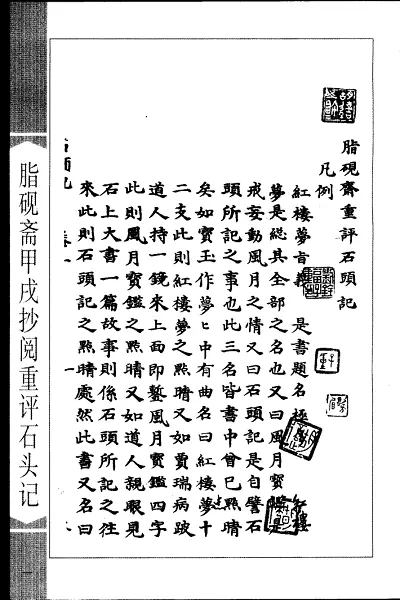 脂硯齋重評石頭記
凡例
紅樓夢旨義 是書題名極 樓
夢是総其全部之名也又曰風月寳 是
戒妄動風月之情又曰石頭記是自譬石
頭所記之事也此三名皆書中曾已㸃睛
矣如寳玉作夢〻中有曲名曰紅樓夢十
二支此則紅樓夢之㸃睛又如賈瑞病跛
道人持一鏡來上面即鏨風月寳鑑四字
此則風月寳鑑之㸃睛又如道人親眼見
石上大書一篇故事則係石頭所記之往
來此則石頭記之㸃睛處然此書又名曰
脂砚斋甲戌抄阅重评石头记